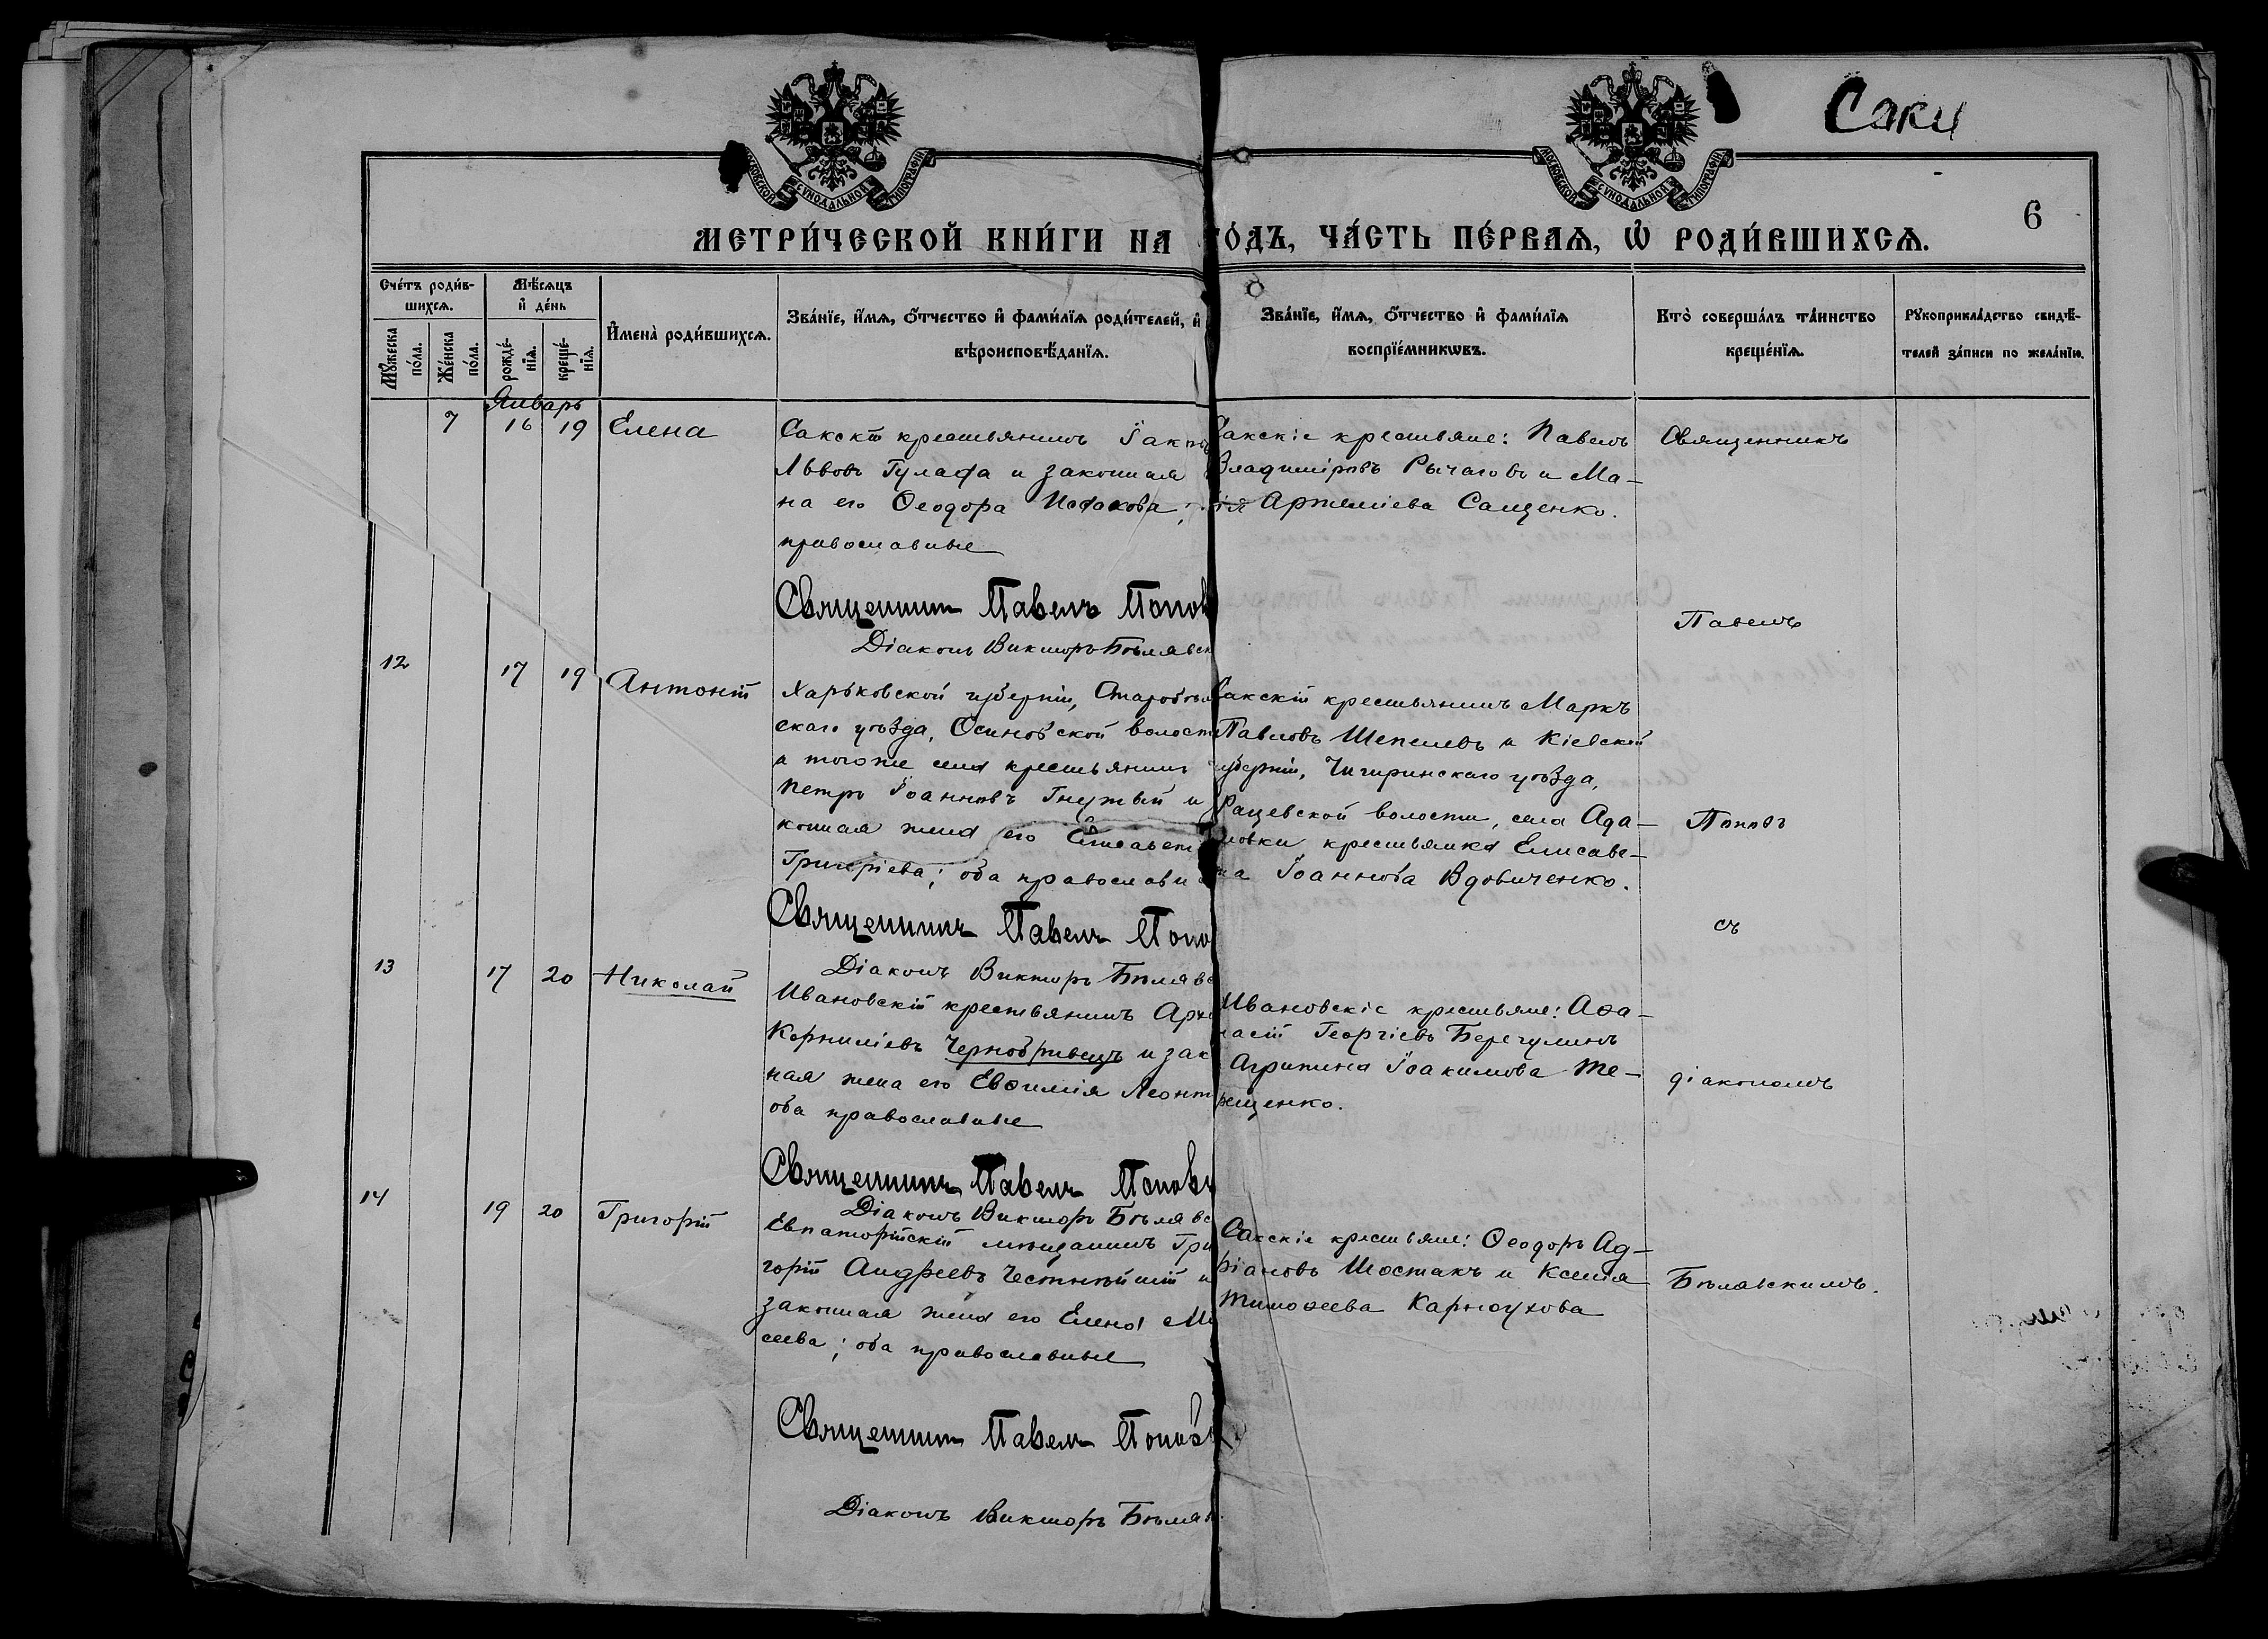 Саки
МОСКОВСКОЙ СУНОДАЛЬНОЙ ТИПОГРАФІИ
МОСКОВСКОЙ СУНОДАЛЬНОЙ ТИПОГРАФІИ
6
МЕТРИ́ЧЕСКОЙ КНИ́ГИ НА ГО́ДЪ, ЧА́СТЬ ПЕ́РВАѦ, Ѡ҆ РОДИ́ВШИХСѦ.
Сче́тъ роди́в-
шихсѧ.
Мѹ́жеска по́ла.
Же́нска по́ла.
Мѣ́сѧцъ
и҆ де́нь
рожде́-
нїѧ.
креще́-
нїѧ.
И҆мена̀ роди́вшихсѧ.
Зва́нїе, и҆́мѧ, ѻ҆́тчество и҆ фами́лїѧ роди́телей, и҆
вѣроисповѣ́данїѧ.
Зва́нїе, и҆́мѧ, ѻ҆́тчество и҆ фами́лїѧ
воспрїе́мникѡвъ.
Кто̀ соверша́лъ та́инство
креще́нїѧ.
Рѹкоприкла́дство свидѣ́-
телей за́писи по жела́нїю.
Январь
7 16 19 Елена
Сакскій крестьянинъ Іаковъ
Львовъ Гулафа и законная
на его Ѳеодора
православные
Священникъ Павелъ Попов
Діаконъ Викторъ Бѣлявск
Сакскіе крестьяне: Павелъ
Владиміровъ Рычаговъ и Ма-
рія Артеміева Сащенко.
Священникъ
Павелъ
12 17 19 Антоній
Харьковской губерніи, Старобѣль
скаго уѣзда, Осиновской волости
и того же села крестьянинъ
Петръ Іоанновъ Гнутый и
конная жена его Елисавета
Григоріева; оба православн
Священникъ Павелъ Попо
Діаконъ Викторъ Бѣлявс
Сакскій крестьянинъ Маркъ
Павловъ Шепелевъ и Кіевской
губерніи, Чигиринскаго уѣзда,
Рацевской волости, села Ада-
мовки крестьянка Елисаве-
та Іоаннова Вдовиченко.
Поповъ
съ
13 17 20 Николай
Ивановскій крестьянинъ Архи
Корниліевъ Чернобривецъ и зак
ная жена его Евѳимія Леонт
оба православные
Священникъ Павелъ Поповъ
Діаконъ Викторъ Бѣлявс
Ивановскіе крестьяне: Аѳа-
насій Георгіевъ Берегулинъ
Агрипина Іоакимова Те-
рещенко.
діакономъ
14 19 20 Григорій
Евпаторійскій мѣщанинъ Гри
горій Андреевъ Честнѣйшій и
законная жена его Елена М
сеева; оба православные
Священникъ Павелъ Поповъ
Діаконъ Викторъ Бѣляв
Сакскіе крестьяне: Ѳеодоръ Ад-
ріановъ Шостакъ и Ксенія
Тимоѳеева Карноухова
Бѣлявскимъ.